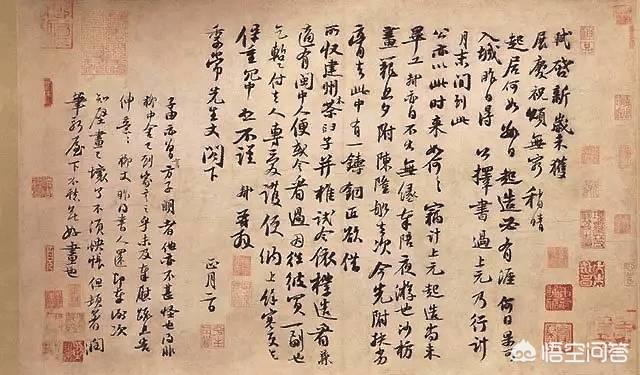 軾啓新歲未獲
展慶祝頌無窮稍晴
起居何如數日起造必有涯何日果可
入城昨日得公擇書過上元乃行計
月末間到此
公亦以此時來如何〻竊計上元起造尚未
畢工軾亦自不出無緣奉陪夜游也沙枋
畫籠旦夕附陳隆船去次今先附扶劣
膏去此中有一鑄銅匠欲借
所收建州木茶臼子并椎試令依樣造看兼
適有閩中人便或令看過因往彼買一副也
乞暫付去人專愛護便納上餘寒更乞
保重冗中恕不謹軾再拜
季常先生丈閣下
正月二日
子由亦曾言方子明者他亦不甚怪也得非
柳中舍已到家言之乎未及奉慰疏且告
伸意〻柳丈昨得書人還即奉謝次
知壁畫已壞了不須怏悵但頓著潤
筆新屋下不愁無好畫也
悟空问答